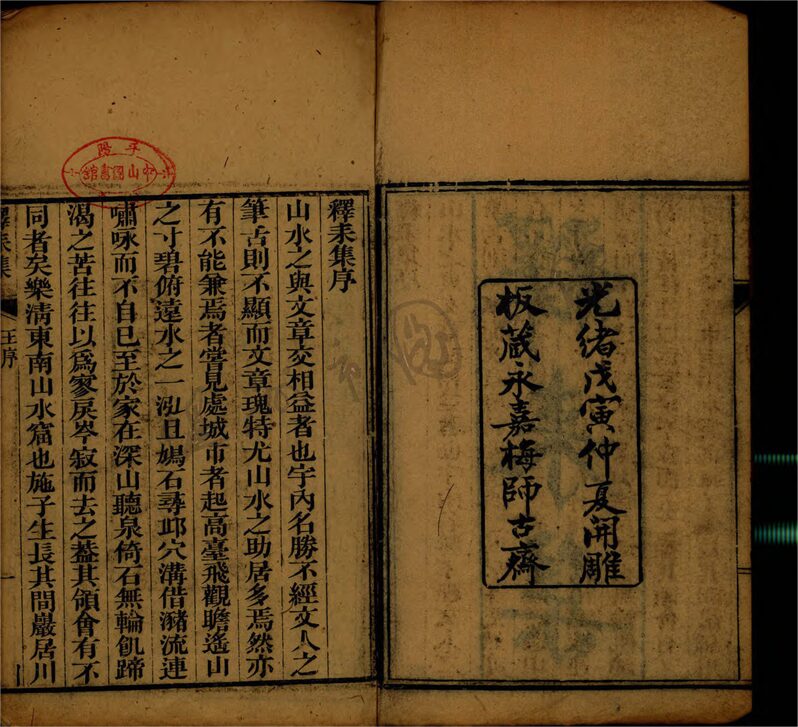 光緒戊寅仲夏開雕
板藏永嘉梅師古齋
釋耒集序
山水之與文章交相益者也宇內名勝不經文人之
筆舌則不顯而文章瑰特尤山水之助居多焉然亦
有不能兼焉者嘗見處城市者起高臺飛觀瞻遙山
之寸碧俯遠水之一泓且媰石尋邱穴溝借瀦流連
嘯咏而不自已至於家在深山聽泉倚石無輪飢蹄
渴之苦往往以爲寥戾岑寂而去之葢其領會有不
同者矣樂淸東南山水窟也施子生長其間巖居川
釋耒集
王序
一
中山圖書館